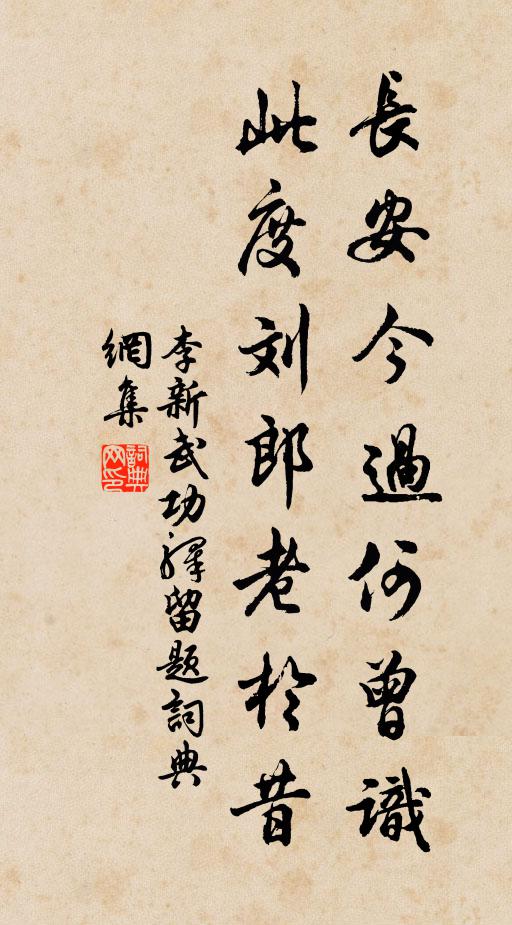 長安今過何曾識
此度刘郎老於昔
李新武功驛留題詞典
網集
詞典網印